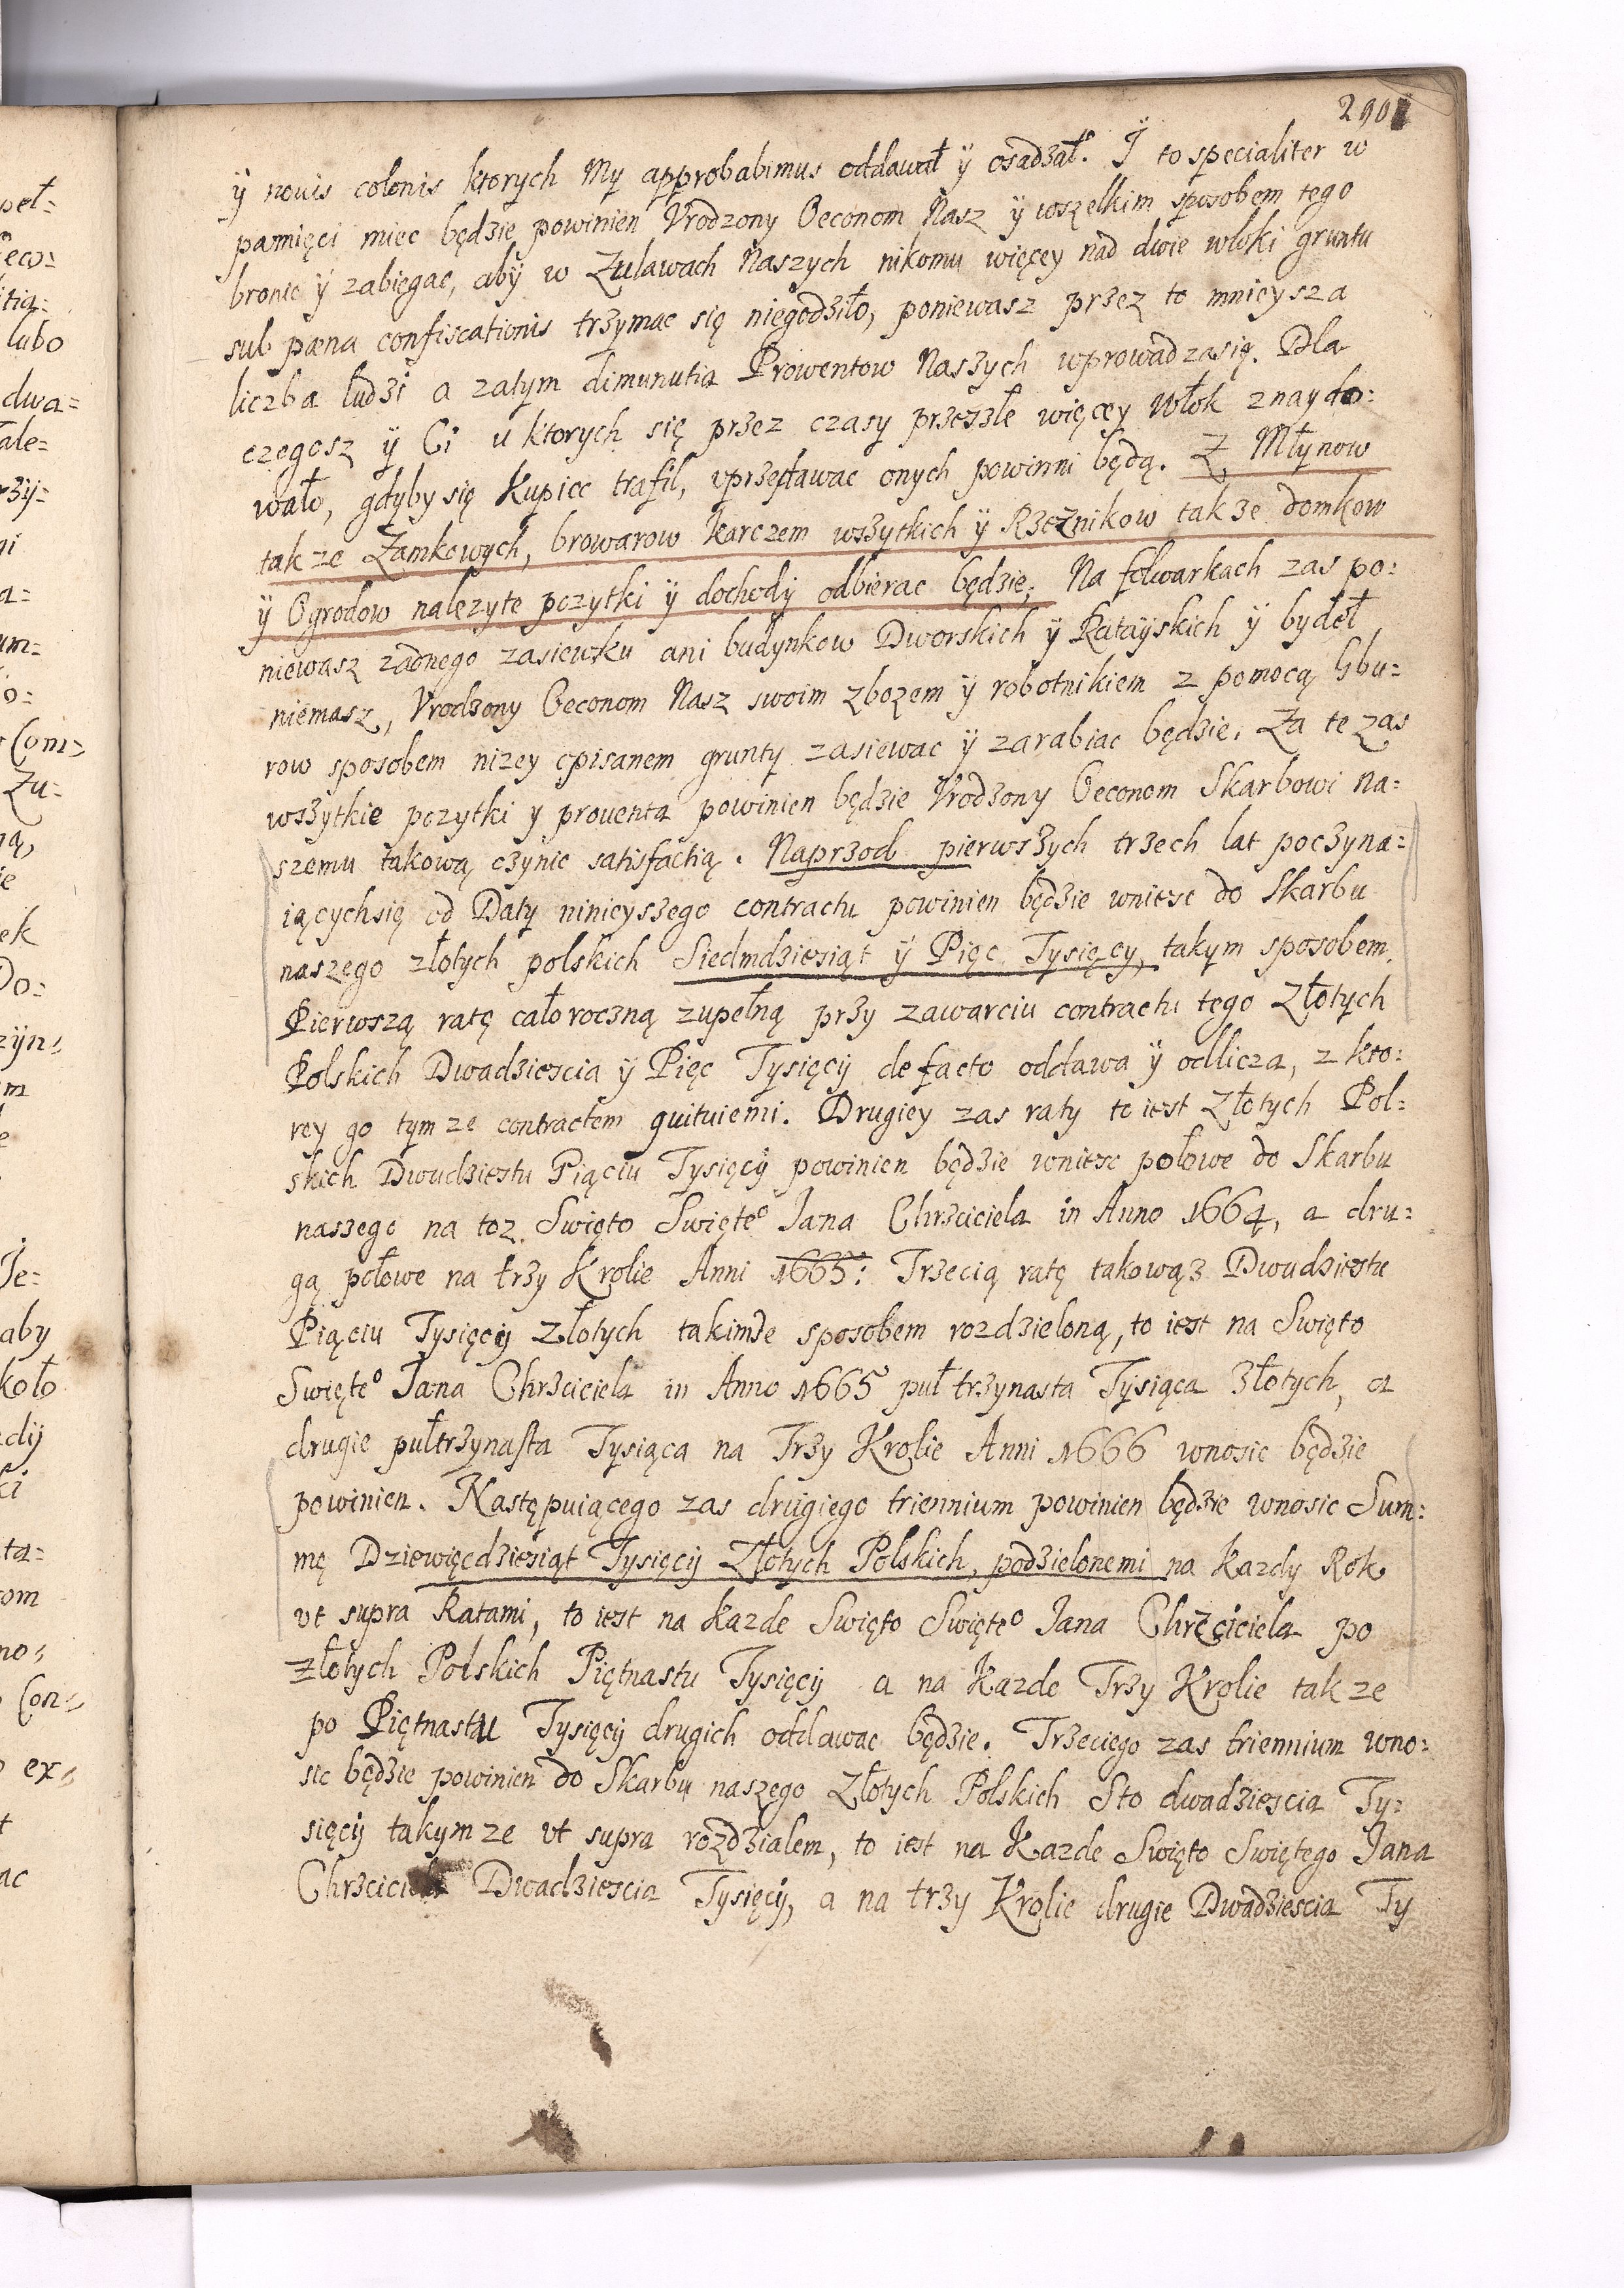 290
ÿ novis colonis ktorych My approbabimus oddawał ÿ osadzał. J to specialiter w
pamięci miec będzie powinien Vrodzony Oeconom Nasz ÿ wszelkim sposobem tego
bronic ÿ zabiegac, abÿ w Zulawach Naszych nikomu więcey nad dwie włoki gruntu
sub pæna confiscationis trzymac się niegodziło, poniewasz przez to mnieysza
liczba ludzi a zatym dimunutia Prowentow Naszych wprowadzasię. Dla
czegosz ÿ Ci u ktorych się przez czasy przeszłe więcey Włok znaydo:
wało, gdyby się Kupiec trafił, vprzedawac onych powinni będą. Z Młynow
takze Zamkowych, browarow karczem wszytkich ÿ Rzeznikow takze domkow
ÿ Ogrodow nalezyte pozytki ÿ dochody odbierac będzie. Na folwarkach zas po:
niewasz zadnego zasiewku ani budynkow Dworskich ÿ Rataÿskich ÿ bydeł
niemasz, Vrodzony Oeconom Nasz swoim zbozem ÿ robotnikiem z pomocą Gbu:
row sposobem nizey opisanem grunty zasiewac ÿ zarabiac będzie. Za te zas
wszytkie pozytki y prouenta powinien będzie Vrodzony Oeconom Skarbowi na:
szemu takową czynic satisfactią. Naprzod pierwszych trzech lat poczyna:
iącychsię od Daty ninieyszego contractu powinien będzie wniesc do Skarbu
naszego złotych polskich Siedmdziesiąt ÿ Pięc Tysięcy, takym sposobem.
Pierwszą ratę całoroczną zupełną przy zawarciu contractu tego Złotych
Polskich Dwadziescia ÿ Pięc Tysięcÿ de facto oddawa ÿ odlicza, z kto:
rey go tymze contractem quituiemi. Drugiey zas raty to iest Złotych Pol:
skich Dwudziestu Piąciu Tysięcÿ powinien będzie wniesc połowe do Skarbu
naszego na toz Swięto Swięteo Jana Chrzciciela in Anno 1664, a dru:
gą połowe na trzy Krolie Anni 1665: Trzecią ratę takowąz Dwudziestu
Piąciu Tysięcÿ Złotych takimze sposobem rozdzieloną, to iest na Swięto
Swięteo Jana Chrzciciela in Anno 1665 puł trzynasta Tysiąca Złotych, a
drugie pułtrzynasta Tysiąca na Trzy Krolie Anni 1666 wnosic będzie
powinien. Następuiącego zas drugiego triennium powinien będzie wnosic Sum:
mę Dziewięcdziesiąt Tysięcÿ Złotych Polskich, podzielonemi na kazdy Rok
vt supra Ratami, to iest na kazde Swięto Swięteo Jana Chrzciciela po
złotych Polskich Piętnastu Tysięcÿ a na Kazde Trzy Krolie takze
po Piętnastu Tysięcÿ drugich oddawac będzie. Trzeciego zas triennium wno:
sic będzie powinien do Skarbu naszego Złotych Polskich Sto dwadziescia Ty:
sięcÿ takymze vt supra rozdzialem, to iest na Kazde Swięto Swiętego Jana
Chrzciciela Dwadziescia Tysięcÿ, a na trzy Krolie drugie Dwadziescia Ty